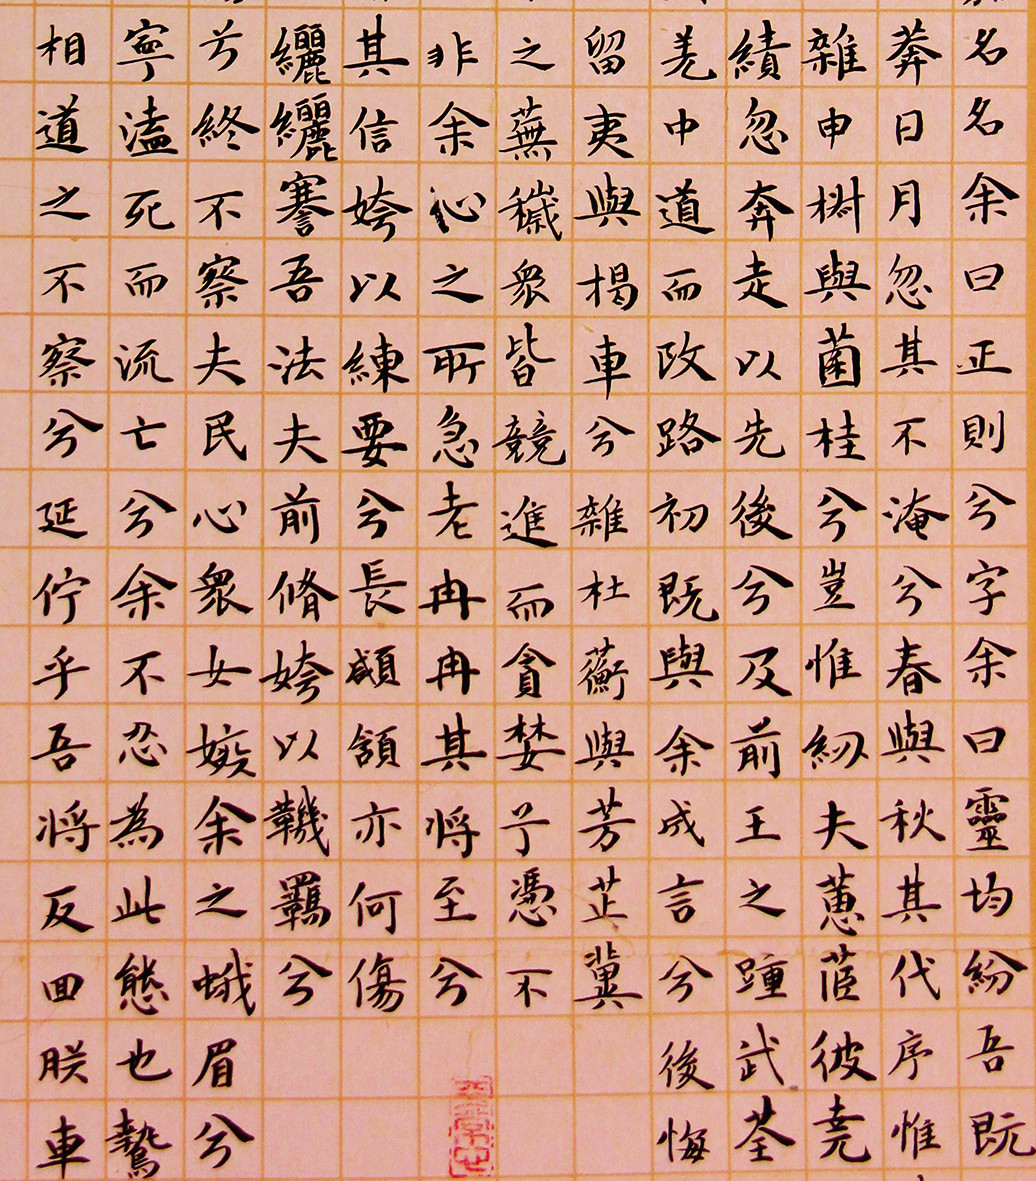 名名余曰正則兮字余曰靈均紛吾既
莽日月忽其不淹兮春與秋其代序惟
雜申樹與菌桂兮豈惟紉夫蕙茝彼堯
績忽奔走以先後兮及前王之踵武荃
羌中道而改路初既與余成言兮後悔
留夷與楬車兮雜杜蘅與芳芷冀
之蕪穢眾皆競進而貪婪兮憑不
非余心之所急老冉冉其將至兮
其信姱以練要兮長顑頷亦何傷
纚纚謇吾法夫前脩姱以鞿羈兮
兮終不察夫民心眾女嫉余之蛾眉兮
寧溘死而流亡兮余不忍為此態也鷙
相道之不察兮延佇乎吾將反回朕車